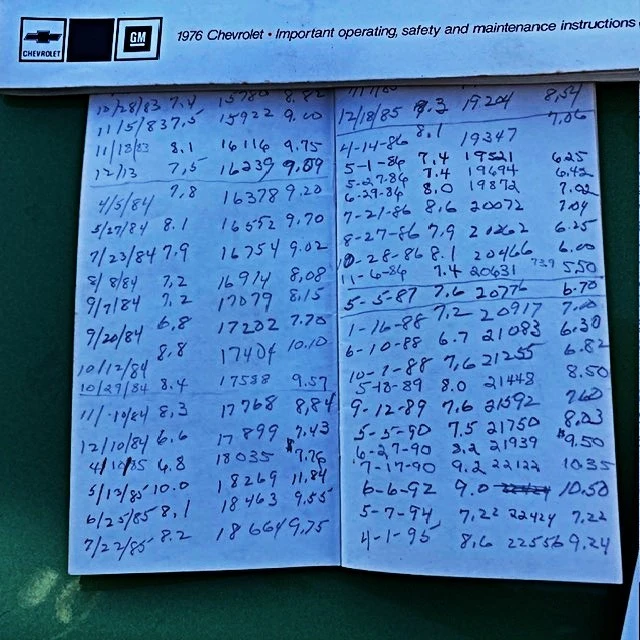 CHEVROLET
GM
1976 Chevrolet • Important operating, safety and maintenance instructions
10/28/83 7,4 15780 8,82
11/5/83 7,5 15922 9,00
11/18/83 8.1 16116 9.75
12/13 7,5 16239 9.09
4/5/84 7,8 16378 9.20
5/27/84 8.1 16552 9.70
7/23/84 7.9 16754 9.02
8/8/84 7.2 16914 8,08
9/7/84 7.2 17079 8.15
9/20/84 6,8 17202 7.70
10/12/84 8,8 17404 10.10
10/29/84 8.4 17588 9.57
11/-10/84 8,3 17768 8,84
12/10/84 6.6 17899 7.43
4/10/85 6.8 18035 $7.76
5/13/85 10.0 18269 11.84
6/25/85 8,1 18463 9.55
7/22/85 8.2 18664 9,75
12/18/85 8.3 19204 8,54
4-14-86 8,1 19347 7,06
5-1-86 7,4 19521 6.25
5-27-86 7.4 19694 6.42
6-29-86 8,0 19872 7.02
7-21-86 8,6 20072 7.04
8-27-86 7,9 20262 6.25
10-28-86 8.1 20466 6.00
11-6-86 7.4 20631 739 5,50
5-5-87 7,6 20776 6.70
1-16-88 7,2 20917 7.00
6-10-88 6.7 21083 6.30
10-1-88 7,6 21255 6.82
5-13-89 8.0 21448 8.50
9-12-89 7,6 21592 7.60
5-5-90 7.5 21750 8,03
6-27-90 8,2 21939 $9,50
7-17-90 9.2 22122 10.35
6-6-92 9.0 10.50
5-7-94 7,22 22424 7.22
4-1-95 8,6 22556 9.24